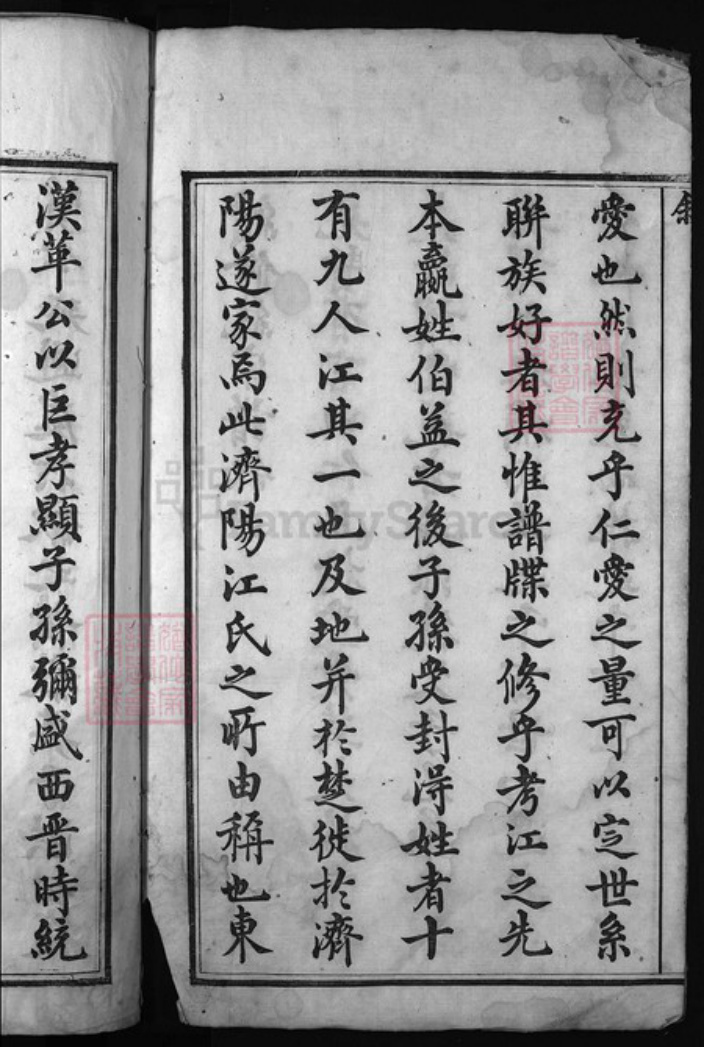 愛也然則充乎仁愛之量可以定世系
聯族好者其惟譜牒之修乎考江之先
本嬴姓伯益之後子孫受封淂姓者十
有九人江其一也及地并於楚徙於濟
陽遂家焉此濟陽江氏之所由稱也東
漢革公以巨孝顯子孫彌盛西晋時統
FamilySearch